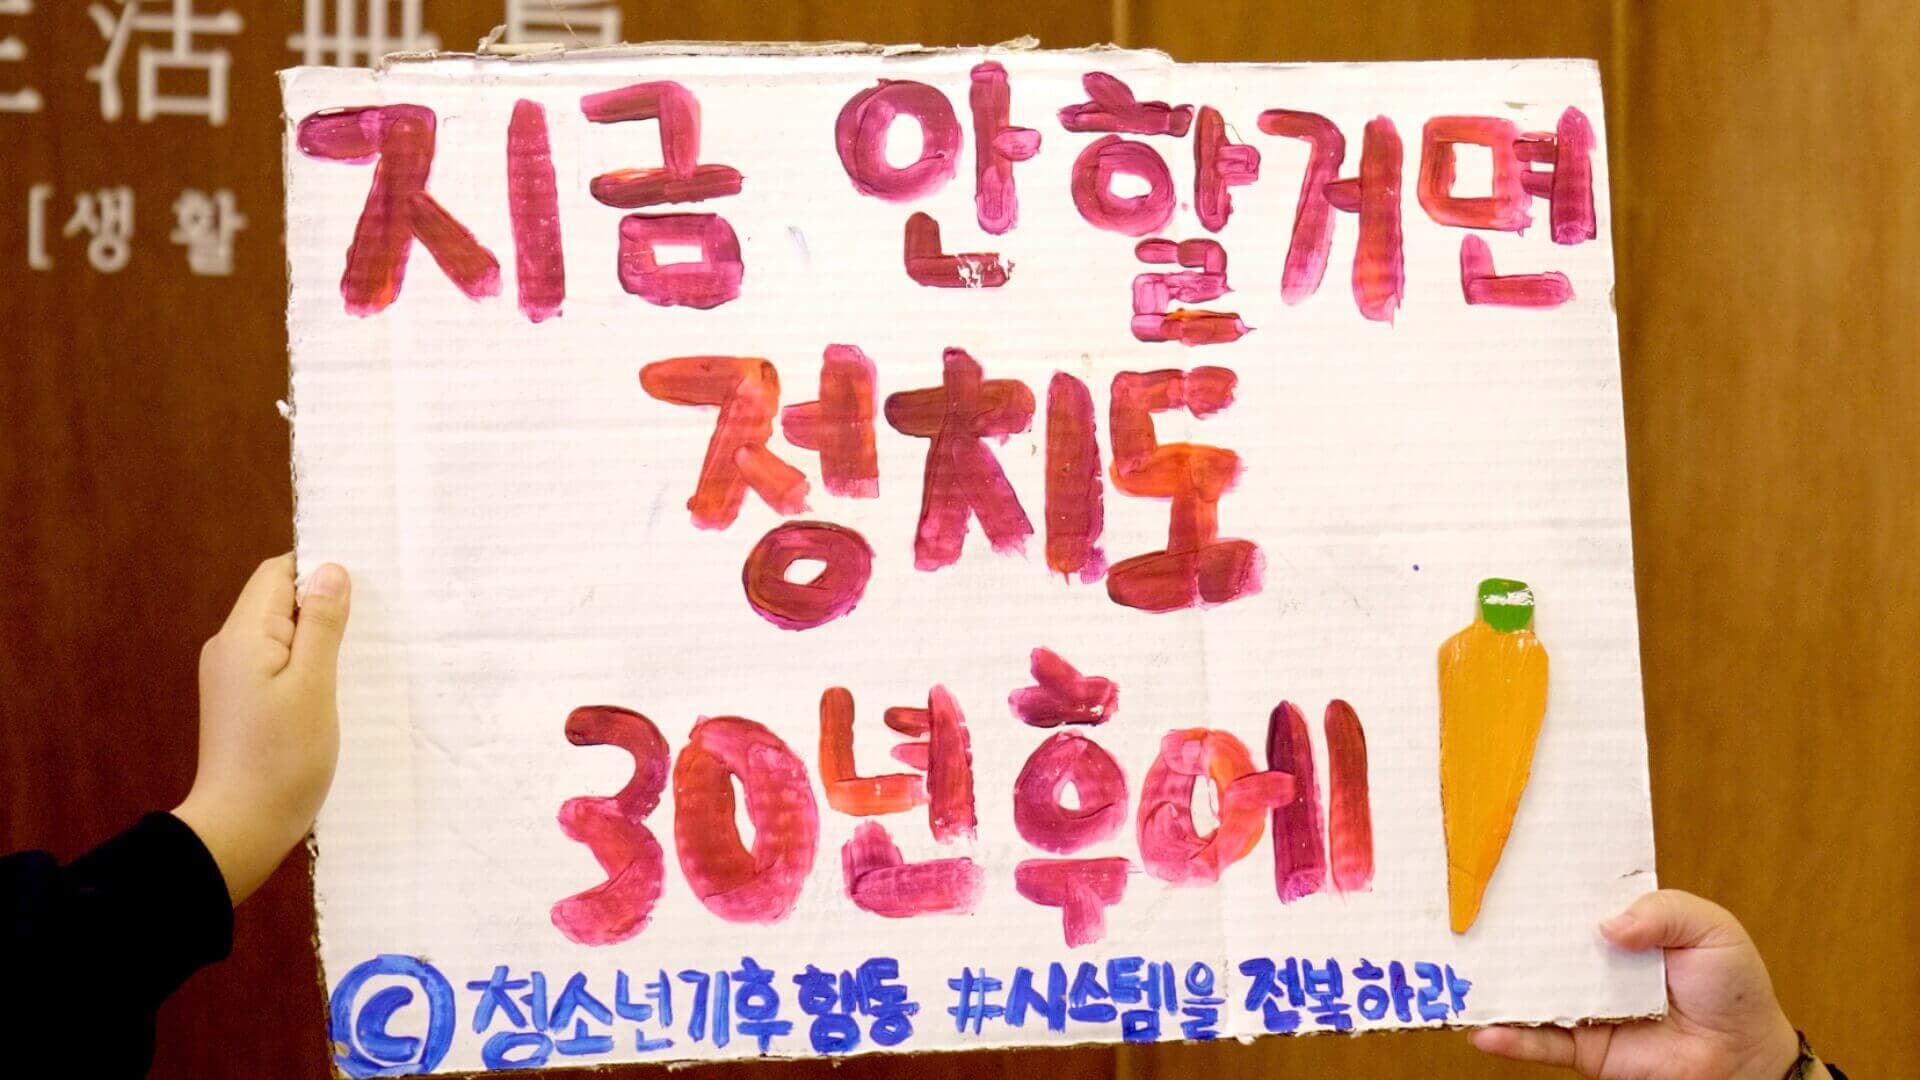 生活冊員
[생활
지금 안할거면
정치도
30년후에
© 청소년기후행동 #시스템을 전복하라